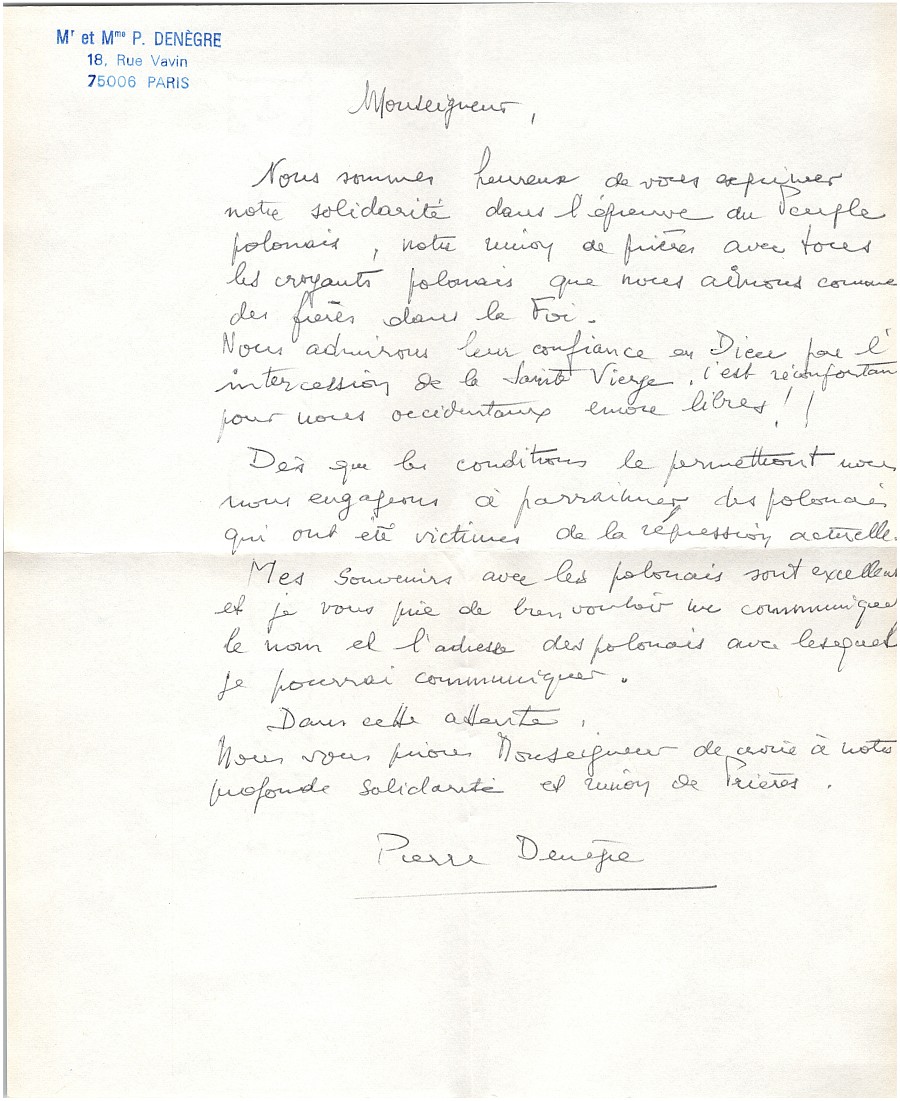 Mr et Mme P. DENÈGRE
18, Rue Vavin
75006 PARIS
Monseigneur,
Nous sommes heureux de vous exprimer
notre solidarité dans l'épreuve du Peuple
polonais, notre union de prières avec tous
les croyants polonais que nous aimons comme
des frères dans la Foi.
Nous admirons leur confiance en Dieu par l'
intercession de la Sainte Vierge. c'est réconfortan
pour nous occidentaux encore libres !!
Dès que les conditions le permettront nous
nous engageons à parrainer des polonais
qui ont été victimes de la répression actuelle.
Mes souvenirs avec les polonais sont excellen
et je vous prie de bien vouloir me communique
le nom et l'adresse des polonais avec lesquel
je pourrai communiquer.
Dans cette attente,
Nous vous prions Monseigneur de croire à notre
profonde solidarité et union de Prières.
Pierre Denègre